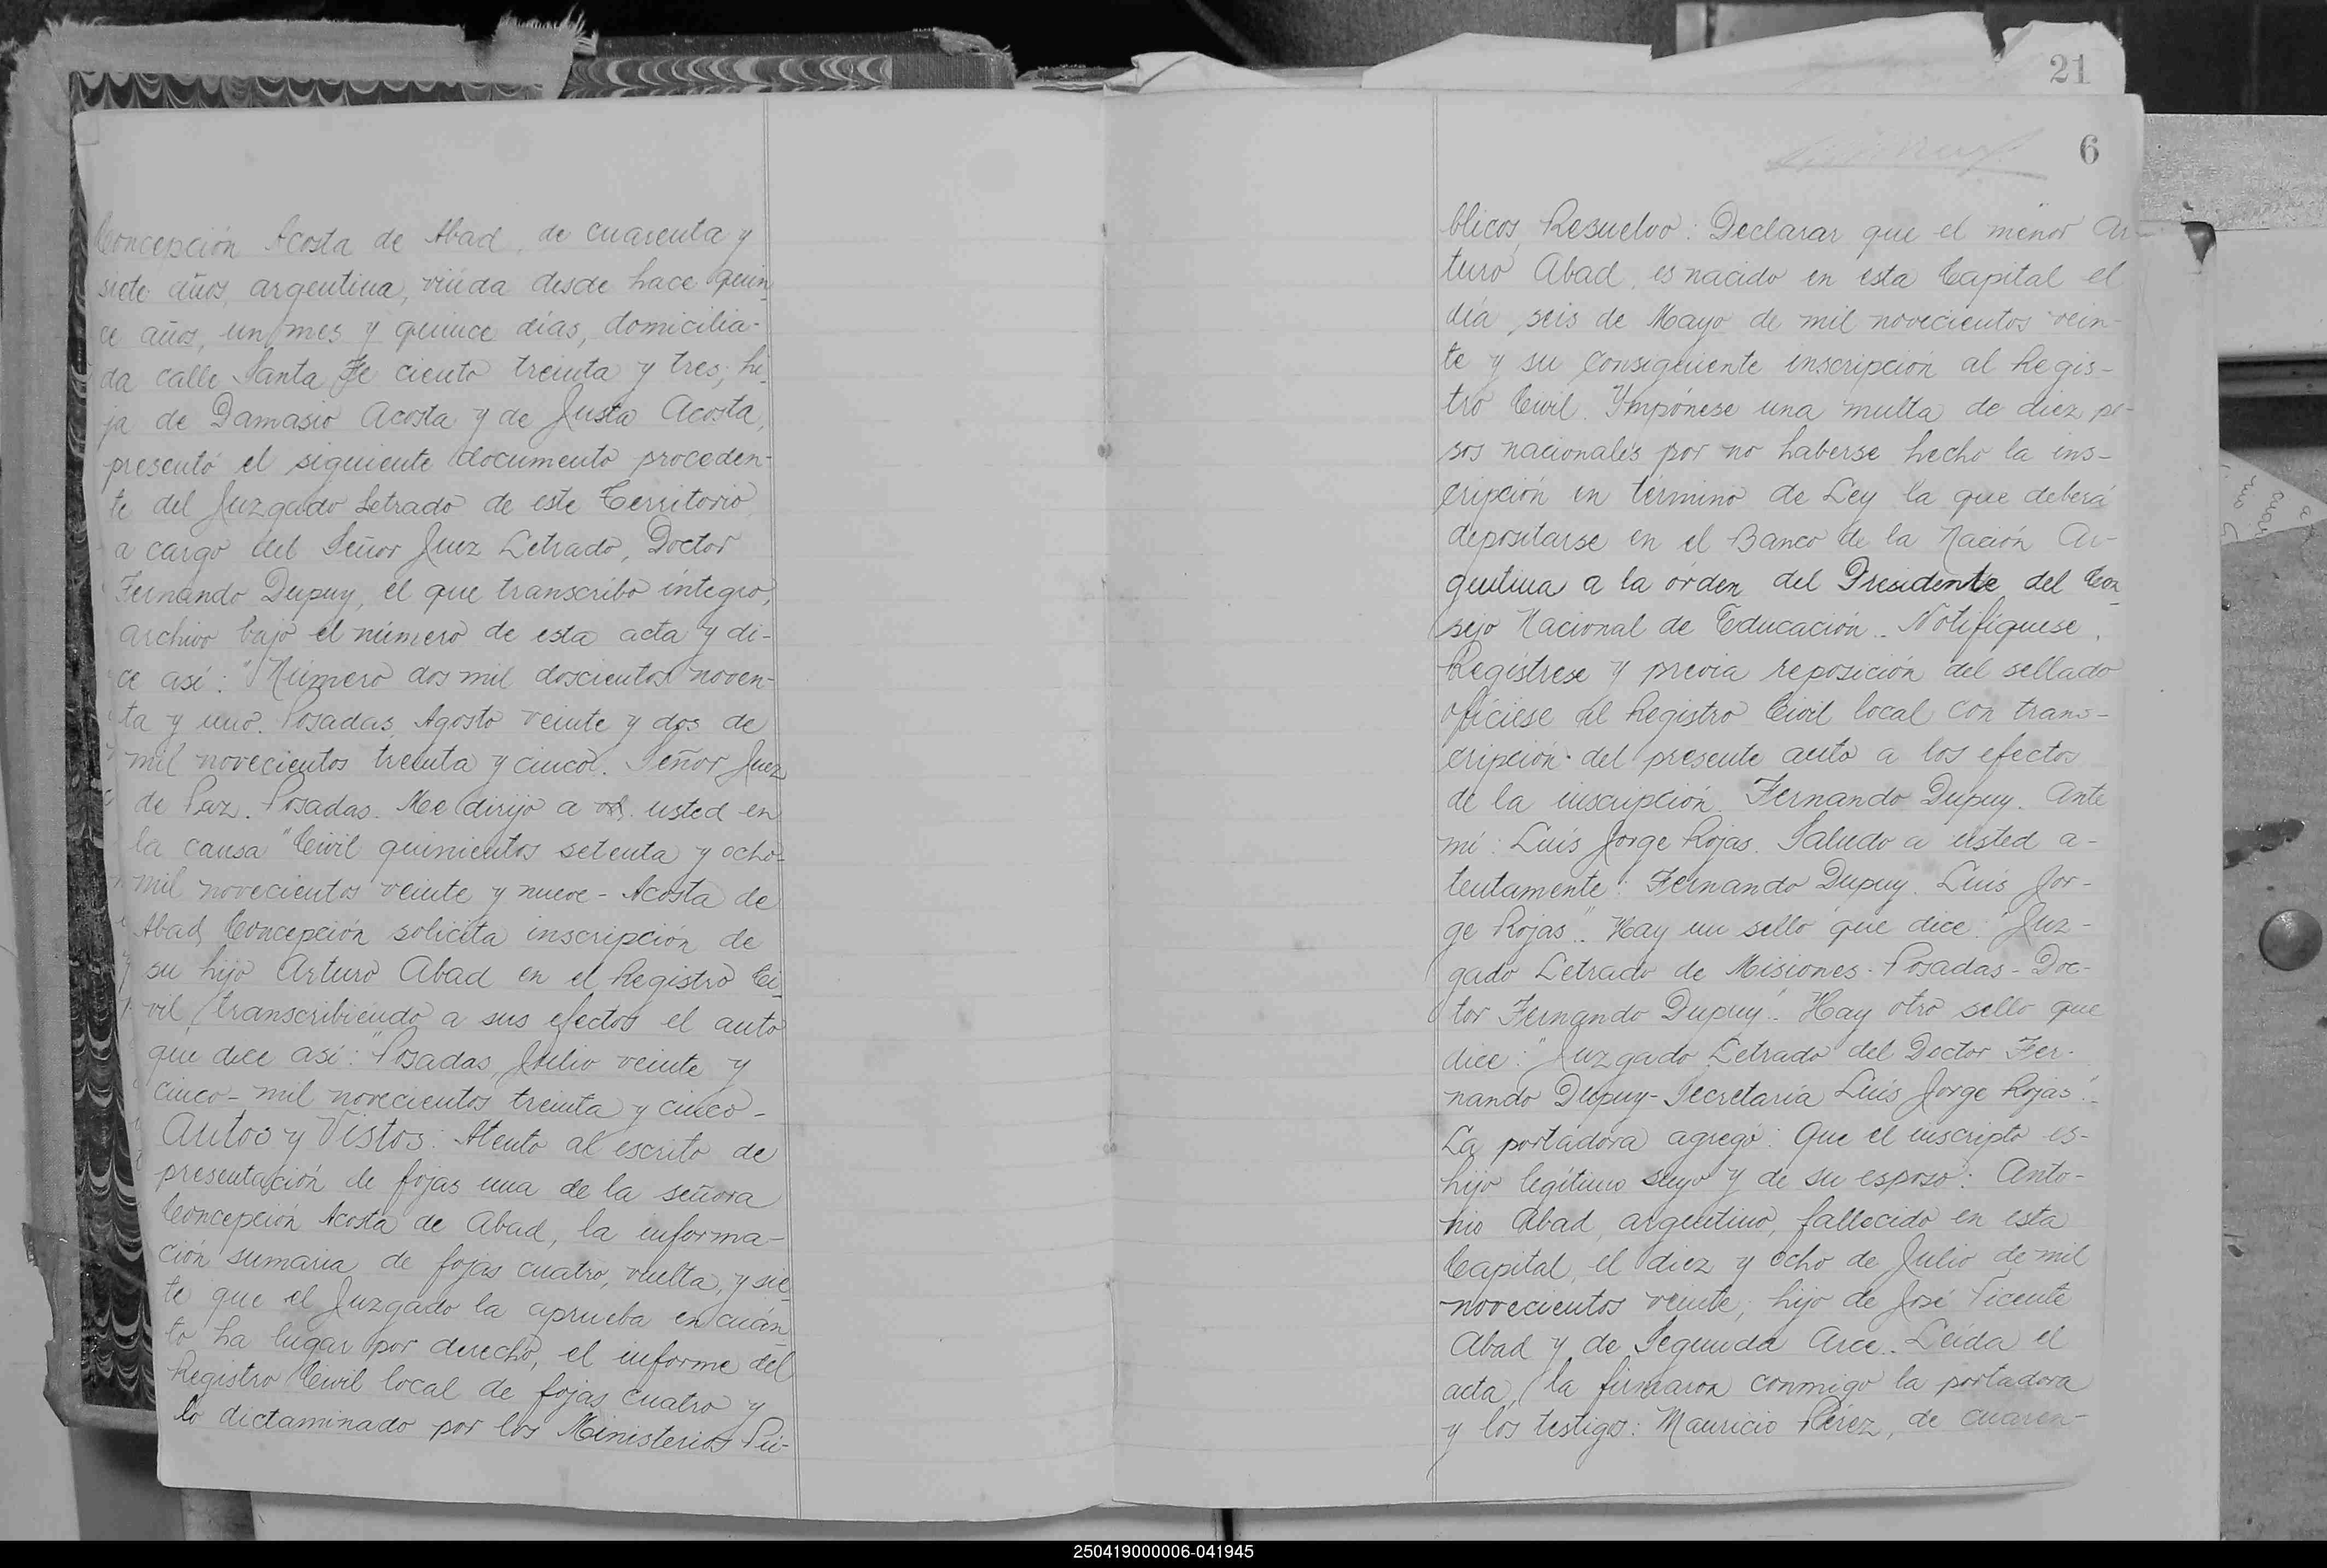 Concepción Acosta de Abad, de cuarenta y
siete años, argentina, viuda desde hace quin-
ce años, un mes y quince días, domicilia-
da calle Santa Fe ciento treinta y tres; hi-
ja de Damasio Acosta y de Justa Acosta,
presentó el siguiente documento proceden-
te del Juzgado Letrado de este Territorio
a cargo del Señor Juez Letrado, Doctor
Fernando Dupuy, el que transcribo íntegro,
archivo bajo el número de esta acta y di-
ce así: "Número dos mil doscientos noven-
ta y uno. Posadas, Agosto veinte y dos de
mil novecientos treinta y cinco. Señor Juez
de Paz. Posadas. Me dirijo a usted en
la causa "Civil quinientos setenta y ocho-
mil novecientos veinte y nueve - Acosta de
Abad, Concepción solicita inscripción de
su hijo Arturo Abad en el Registro Ci-
vil, transcribiendo a sus efectos el auto
que dice así: "Posadas, Julio veinte y
cinco - mil novecientos treinta y cinco -
Autos y Vistos: Atento al escrito de
presentación de fojas una de la señora
Concepción Acosta de Abad, la informa-
ción sumaria de fojas cuatro, vuelta, y sie-
te que el Juzgado la aprueba en cuán-
to ha lugar por derecho, el informe del
Registro Civil local de fojas cuatro y
lo dictaminado por los Ministerios Pú-
21
6
blicos, Resuelvo: Declarar que el menor Ar-
turo Abad, es nacido en esta Capital el
día seis de Mayo de mil novecientos vein-
te y su consiguiente inscripción al Regis-
tro Civil. Ympónese una multa de diez pe-
sos nacionales por no haberse hecho la ins-
cripción en término de Ley la que deberá
depositarse en el Banco de la Nación Ar-
gentina a la órden del Presidente del Con-
sejo Nacional de Educación. Notifíquese.
Regístrese y previa reposición del sellado
ofíciese al Registro Civil local con trans-
cripción del presente auto a los efectos
de la inscripción. Fernando Dupuy. Ante
mí: Luis Jorge Rojas. Saludo a usted a-
tentamente: Fernando Dupuy. Luis Jor-
ge Rojas". Hay un sello que dice: "Juz-
gado Letrado de Misiones - Posadas - Doc-
tor Fernando Dupuy". Hay otro sello que
dice: "Juzgado Letrado del Doctor Fer-
nando Dupuy - Secretaría Luis Jorge Rojas".
La portadora agregó: Que el inscripto es-
hijo legítimo suyo y de su esposo: Anto-
nio Abad, argentino, fallecido en esta
Capital, el diez y ocho de Julio de mil
novecientos veinte; hijo de José Vicente
Abad y de Segunda Arce. Leída el
acta, la firmaron conmigo la portadora
y los testigos: Mauricio Pérez, de cuaren-
250419000006-041945